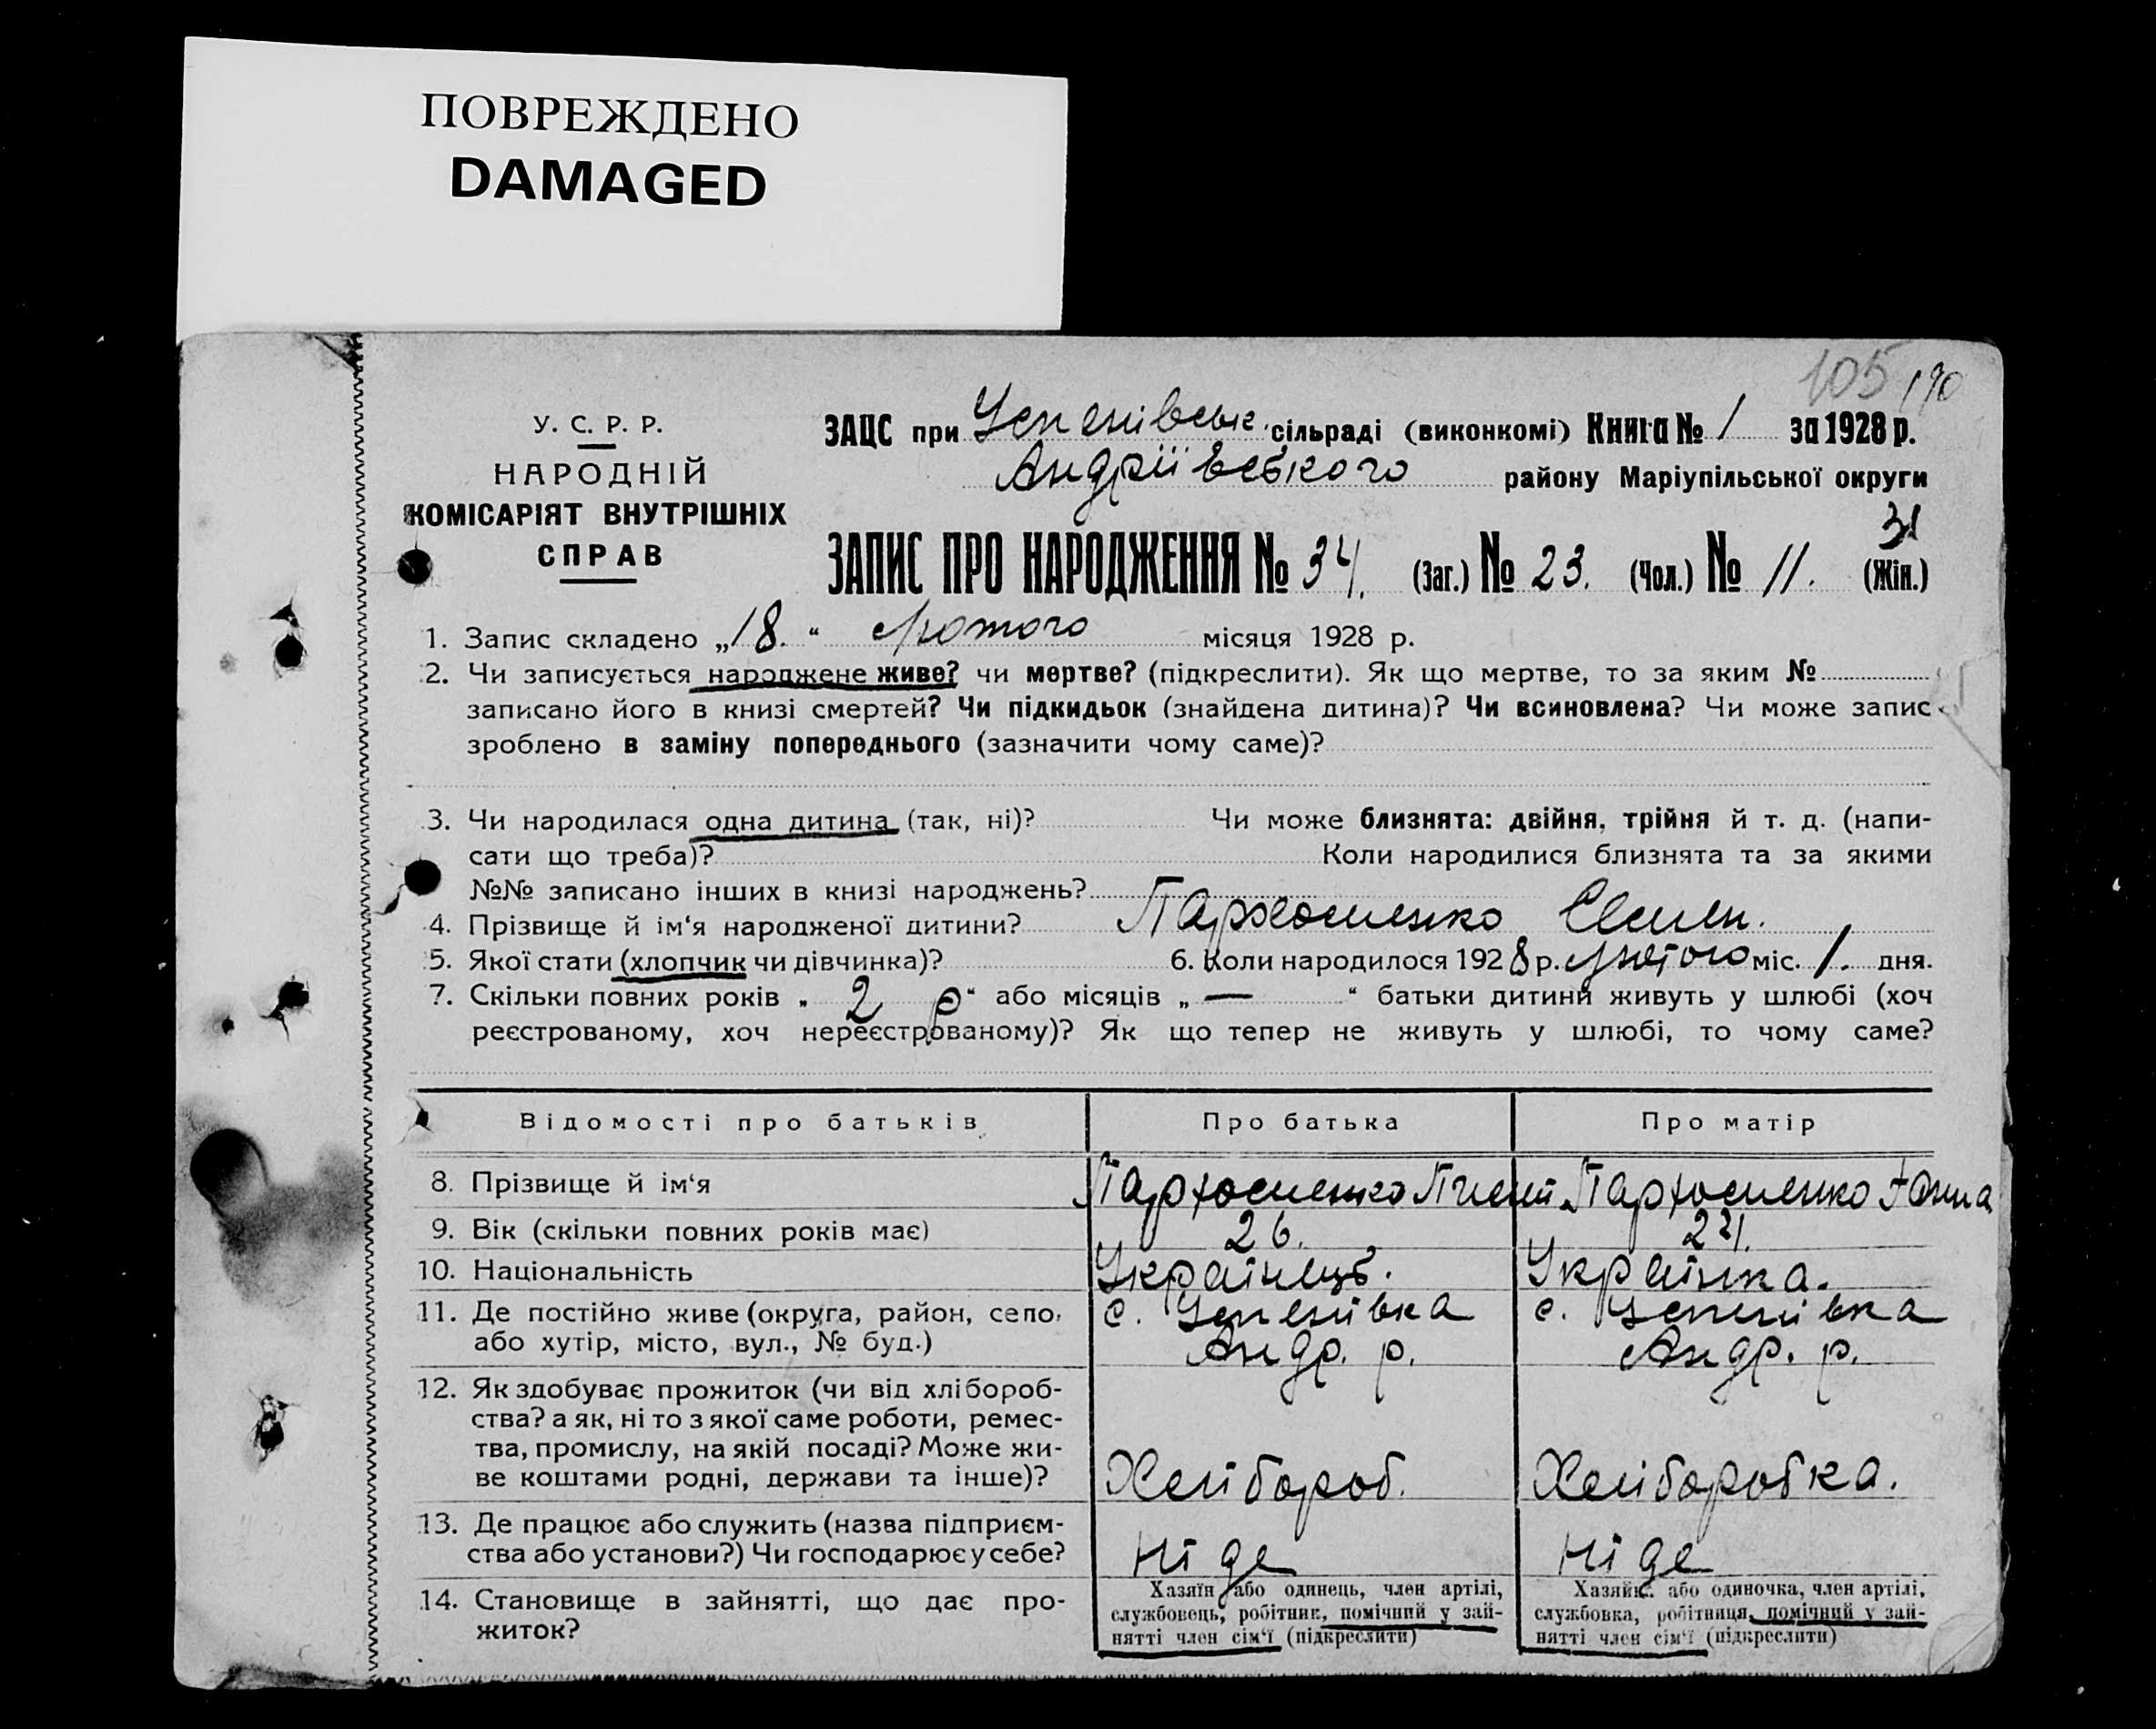 ПОВРЕЖДЕНО
DAMAGED
105 190
У. С. Р. Р.
НАРОДНІЙ
КОМІСАРІЯТ ВНУТРІШНІХ
СПРАВ
ЗАЦС при Успенівськ. сільраді (виконкомі) Книга № 1 за 1928 р.
Андріївського району Маріупільської округи
31
ЗАПИС ПРО НАРОДЖЕННЯ № 34. (Заг.) № 23. (Чол.) № 11. (Жін.)
1. Запис складено „18.“ лютого місяця 1928 р.
2. Чи записується народжене живе? чи мертве? (підкреслити). Як що мертве, то за яким №
записано його в книзі смертей? Чи підкидьок (знайдена дитина)? Чи всиновлена? Чи може запис
зроблено в заміну попереднього (зазначити чому саме)?
3. Чи народилася одна дитина (так, ні)? Чи може близнята: двійня, трійня й т. д. (напи-
сати що треба)? Коли народилися близнята та за якими
№№ записано інших в книзі народжень?
4. Прізвище й ім‘я народженої дитини? Пархоменко
5. Якої стати (хлопчик чи дівчинка)? 6. Коли народилося 1928 р. лютого міс. 1. дня.
7. Скільки повних років „ 2 р “ або місяців „ — “ батьки дитини живуть у шлюбі (хоч
реєстрованому, хоч нереєстрованому)? Як що тепер не живуть у шлюбі, то чому саме?
Відомості про батьків Про батька Про матір
8. Прізвище й ім‘я Пархоменко Пархоменко Ганна
9. Вік (скільки повних років має) 26.
10. Національність Українець. Українка.
11. Де постійно живе (округа, район, село, с. Успенівка с. Успенівка
або хутір, місто, вул., № буд.) Андр. р. Андр. р.
12. Як здобуває прожиток (чи від хлібороб-
ства? а як, ні то з якої саме роботи, ремес-
тва, промислу, на якій посаді? Може жи-
ве коштами родні, держави та інше)? Хлібороб. Хліборобка.
13. Де працює або служить (назва підприєм-
ства або установи?) Чи господарює у себе? Ні де Ні де
14. Становище в зайнятті, що дає про-
житок?
Хазяїн або одинець, член артілі,
службовець, робітник, помічний у зай-
нятті член сім‘ї (підкреслити)
Хазяйка або одиночка, член артілі,
службовка, робітниця, помічний у зай-
нятті член сім‘ї (підкреслити)